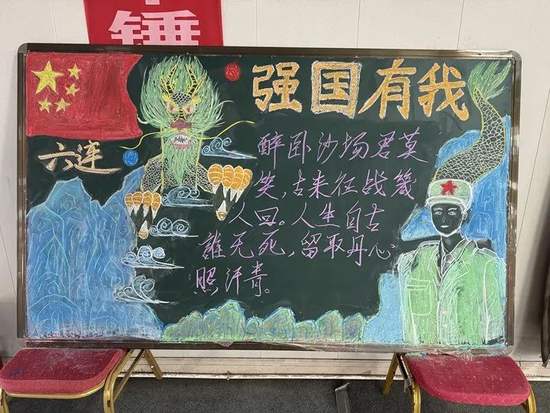 锤
强国有我
六连
醉卧沙场君莫
笑,古来征战幾
人回。人生自古
誰无死,留取丹心
照汗青。